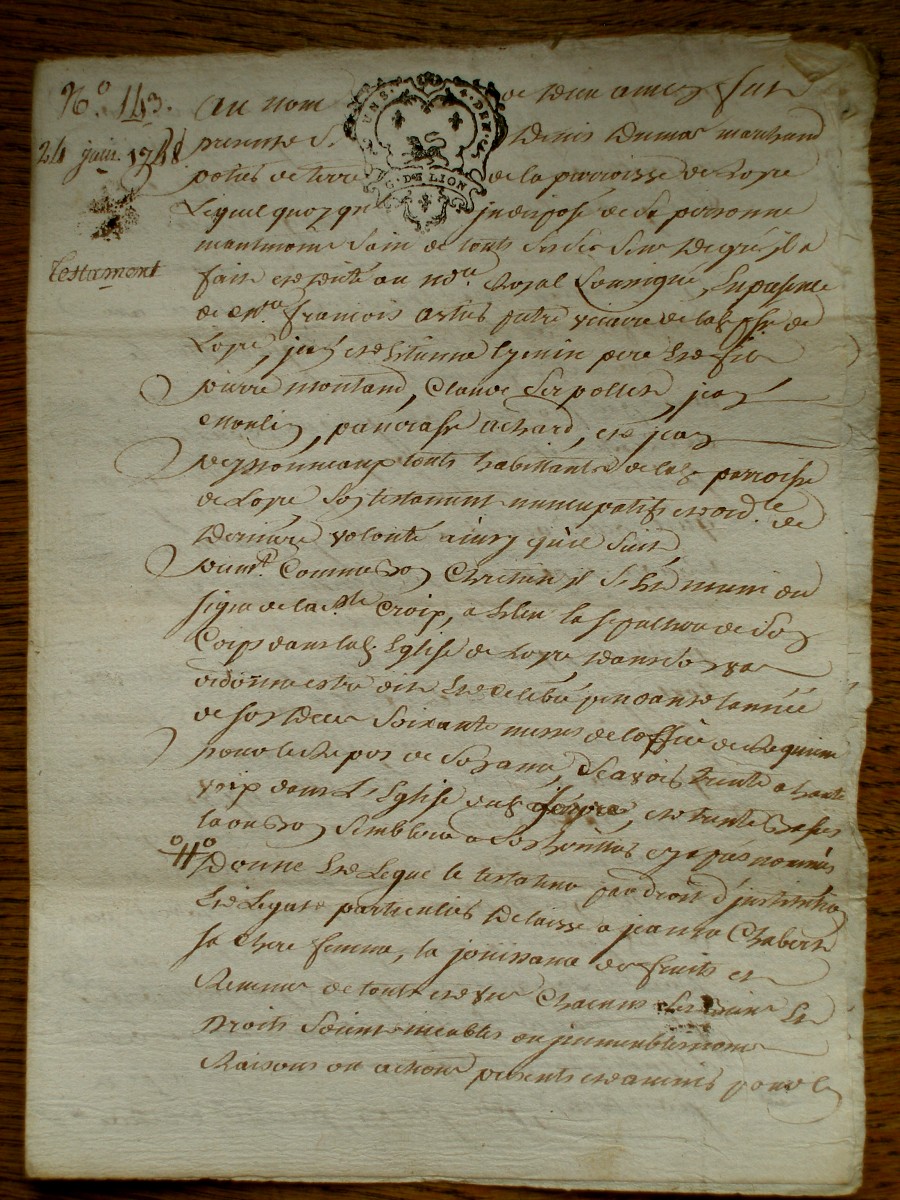 N.º 143.
24 juin 1748
Testament
UN S. 4. DEN.
G. DE LION
Au nom de Dieu amen fut
present Sr. Denis Dumas marchand
potier de terre de la parroisse de Loyre
Lequel quoy qu indisposé de Sa personne
mantmoins Sain de touts Ses Sens De gré il a
fait et dicté au no.re Royal Soussigné, En presence
de François Artus pretre vicaire de lad. psse de
Loyre, jean et Etienne pere Et fils
pierre montand, Claude Serpollet, jean
pancrasse Achard, et jean
touts habittants de lad. parroisse
de Loyre Son testament nuncupatif et ord.ce de
Derniere volonté ainsy qu'il Suit
premt. Comme bon Chretien il S'Est muni du
signe de la Ste Croix, a Eleu la sepulture de Son
Corps dans lad. Eglise de Loyre
ordonne estre dit Et celebré pendant l'année
de son deces Soixante messes de l'office de Requiem
pour le Repos de Son ame, Scavoir trente a haute
voix dans l'Eglise dud. Loyre, et trente basses
la ou bon Semblera a Ses heritiers cy apres nommés
Donne Et Legue le testateur par droit d'institution
Et Legat particulier Delaisse a jeanne Chabert
sa Chere femme, la jouissance des fruits et
Revenus de touts et uns Chacuns Ses Biens Et
Droits Soient meubles ou immeubles noms
Raisons ou actions presents et avenir pour le